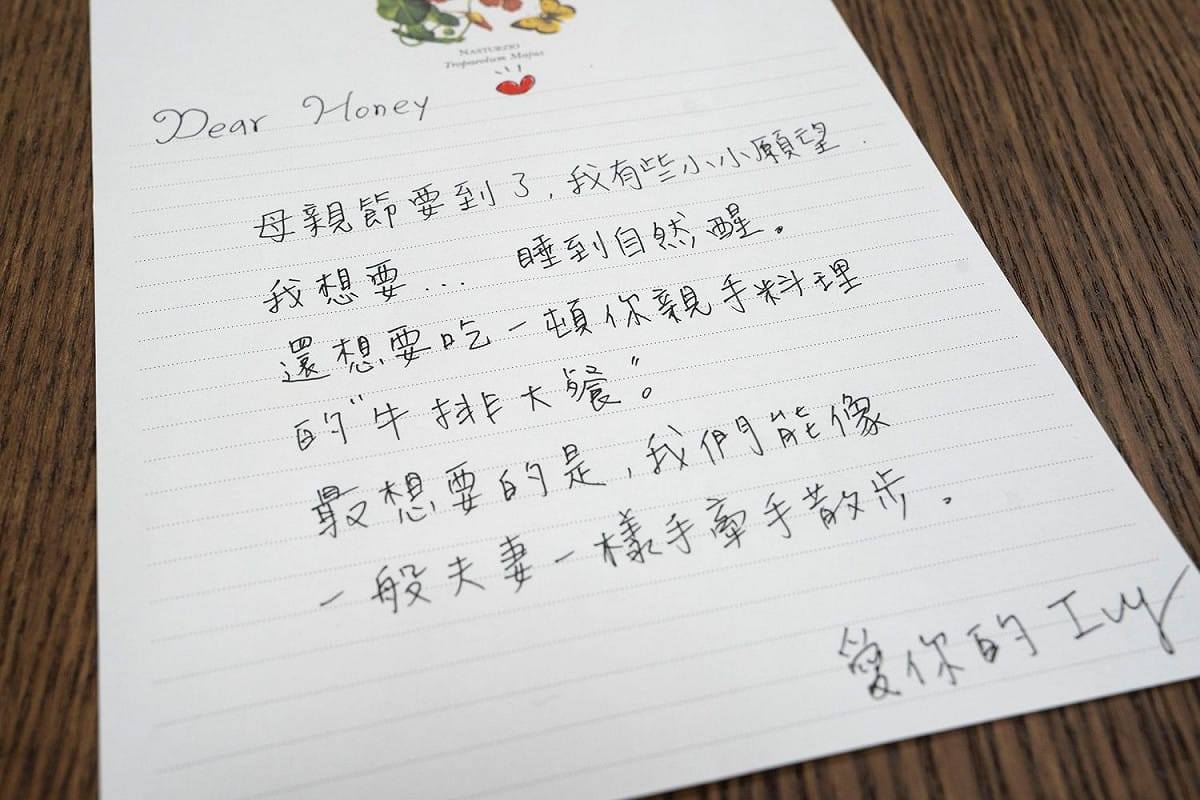 NASTURZIO
Tropaeolum Majus
Dear Honey
母親節要到了,我有些小小願望.
我想要... 睡到自然醒。
還想要吃一頓你親手料理
的"牛排大餐"。
最想要的是,我們能像
一般夫妻一樣手牽手散步。
愛你的 Ivy